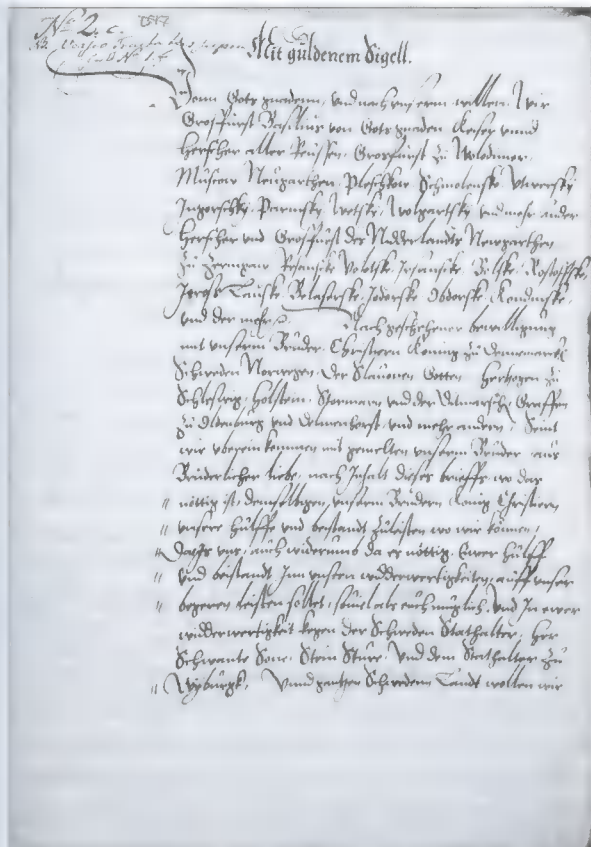 No 2. c. 1517
Mit guldenem Sigell.
Vonn Gots gnadenn, vnd nach vnserm willen. Wir
Grosfurst Basilius von Gots gnaden Keser vnnd
Herscher aller Reussen. Grosfurst zu Wolodimer.
Muscow Neugarthen. Pleschkow. Schmolenske Utwersky
Jugorschky. Parmsky. Wetsky. Wolgartsky vnd mehr ander
Herscher vnd Grosfurst des Nidderlandts Newgarthen
zu Zernigaw Resanske Volotske. Irsewske. Bilske. Rostofske.
Jerosslauske. Belaserske. Udorske. Obdorske. Kondinske.
vnd der mehr. Nach geschehener bewilligung
mit vnserm Bruder. Christiern Köning zu Dennemarck
Schweden Norwegen. der Slauonen Gotten Hertzogen zu
Schleswig. Holstein. Stormarn vnd der Ditmarschen Graffen
zu Oldenburg vnd Delmenhorst. vnd mehr andern. Seint
wir vberein kommen mit gemelten vnserm Bruder aus
Bruderlicher liebe. nach Inhalt dieses brieffs wo das
nöttig ist. demselbigen, vnserm Brudern König Christiern
vnsere hülffe vnd beistandt zuleisten wo wir können.
Dargegen vns, auch widerumb da es nöttig. Ewer hülff
vnd beistandt. Inn vnsern widderwertigkeiten, auff vnser
begeren leisten sollet, souiel als euch müglich. Vnd In ewer
widderwertigkeit kegen der Schweden Stathalter, Her
Schwante Sone. Stein Sture. Vnd dem Stathalter zu
Wyburgk. Vnnd gantzen Schwedenn Landt wollen wir